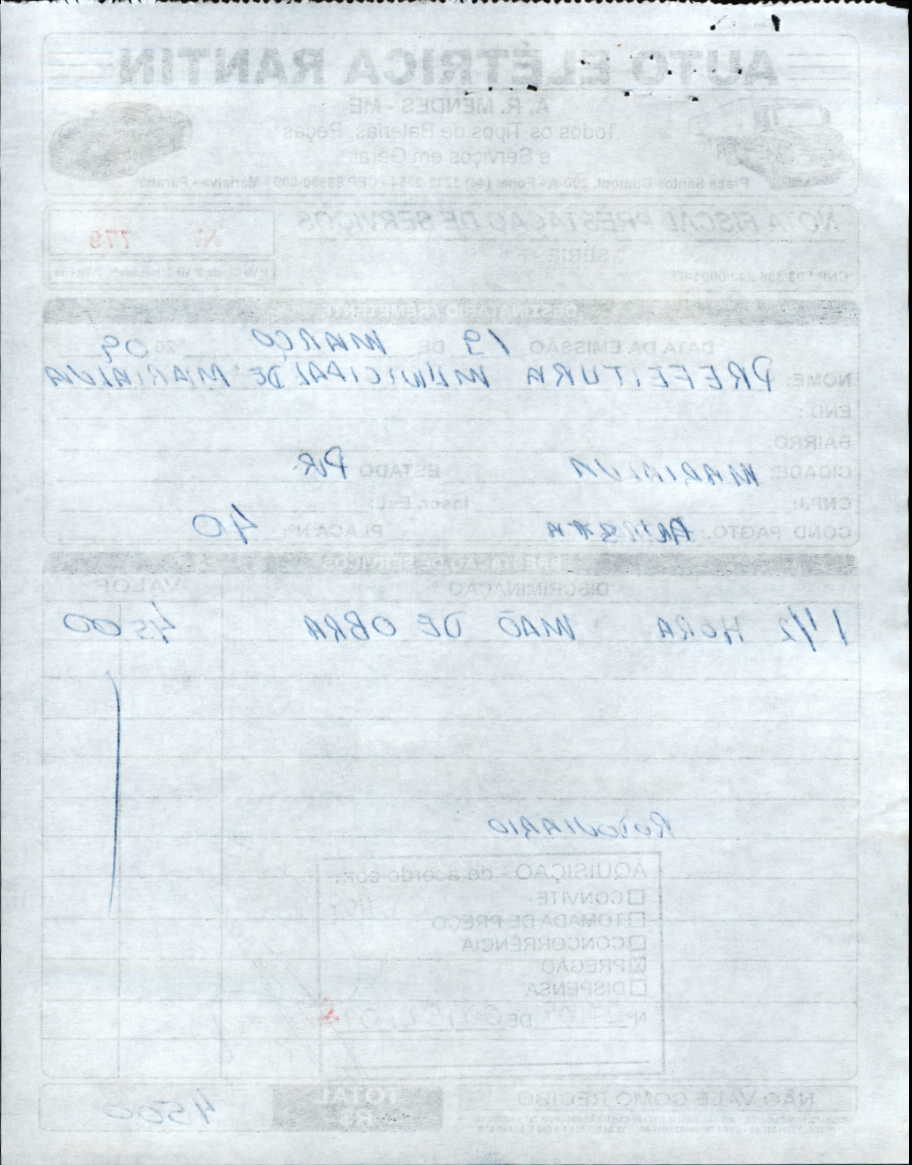 AUTO ELÉTRICA RANTIN
A. R. MENDES - ME
Todos os Tipos de Baterias, Peças
e Serviços em Geral
NOTA FISCAL PRESTAÇÃO DE SERVIÇOS
Nº 779
SÉRIE
DESTINATÁRIO / REMETENTE
DATA DA EMISSÃO 19 DE MARÇO 20 09
NOME: PREFEITURA MUNICIPAL DE MARIALVA
END.:
BAIRRO:
CIDADE: MARIALVA ESTADO PR.
CNPJ: Inscr. Est.:
COND. PAGTO.: PLACA Nº: 40
PRESTAÇÃO DE SERVIÇOS
DISCRIMINAÇÃO VALOR
1 1/2 HORA MAO DE OBRA 4500
RODOVIARIO
AQUISIÇÃO - de acordo com:
☐ CONVITE
☐ TOMADA DE PREÇO
☐ CONCORRÊNCIA
☒ PREGÃO
☐ DISPENSA
Nº DE
NÃO VALE COMO RECIBO TOTAL R$ 4500